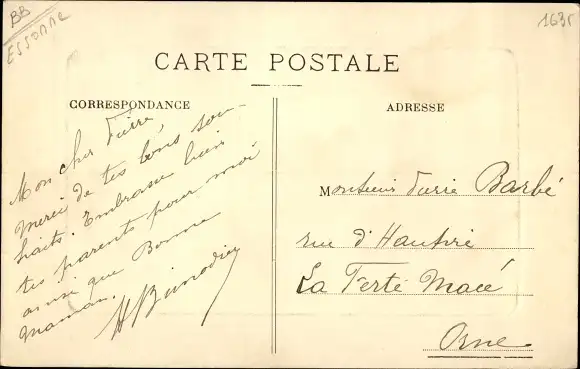 BB
ESSONNE
1635
CARTE POSTALE
CORRESPONDANCE
ADRESSE
Mon cher
merci de tes bons sou-
haits. Embrasse bien
tes parents pour moi
ainsi que Bonne
maman.
Monsieur Barbé
rue d'Hautvie
La Ferté Macé
Orne